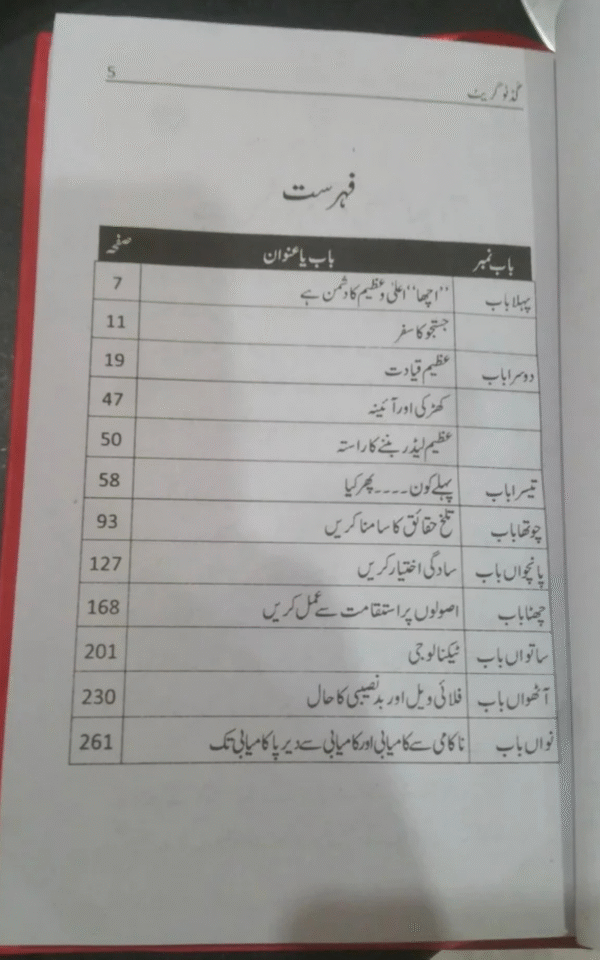 گڈ ٹو گریٹ 5
فہرست
باب نمبر باب یا عنوان صفحہ
پہلا باب "اچھا" اعلیٰ و عظیم کا دشمن ہے 7
جستجو کا سفر 11
دوسرا باب عظیم قیادت 19
کھڑکی اور آئینہ 47
عظیم لیڈر بننے کا راستہ 50
تیسرا باب پہلے کون ---- پھر کیا 58
چوتھا باب تلخ حقائق کا سامنا کریں 93
پانچواں باب سادگی اختیار کریں 127
چھٹا باب اصولوں پر استقامت سے عمل کریں 168
ساتواں باب ٹیکنالوجی 201
آٹھواں باب فلائی ویل اور بدنصیبی کا حال 230
نواں باب ناکامی سے کامیابی اور کامیابی سے دیرپا کامیابی تک 261